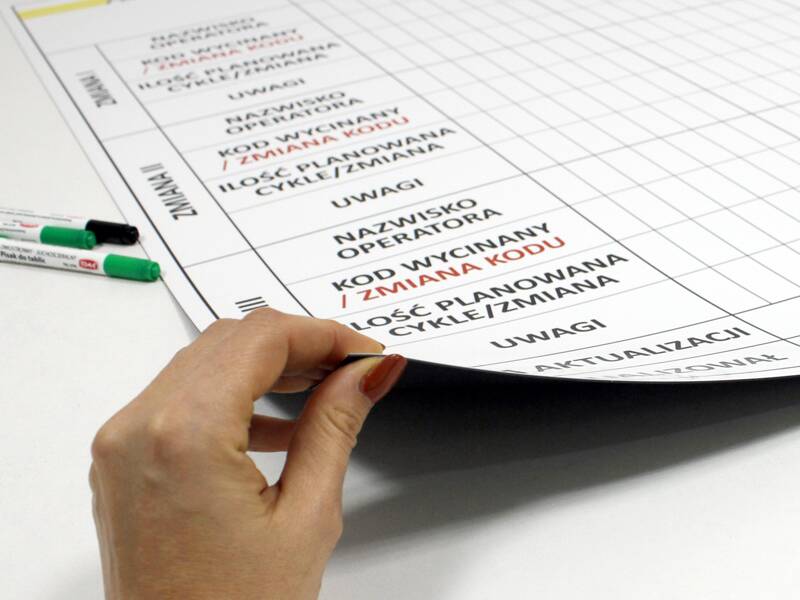 ZMIANA I
NAZWISKO
OPERATORA
KOD WYCINANY
/ ZMIANA KODU
ILOŚĆ PLANOWANA
CYKLE/ZMIANA
UWAGI
ZMIANA II
NAZWISKO
OPERATORA
KOD WYCINANY
/ ZMIANA KODU
ILOŚĆ PLANOWANA
CYKLE/ZMIANA
UWAGI
III
NAZWISKO
OPERATORA
KOD WYCINANY
/ ZMIANA KODU
ILOŚĆ PLANOWANA
CYKLE/ZMIANA
UWAGI
AKTUALIZACJI
Pisak do tablic